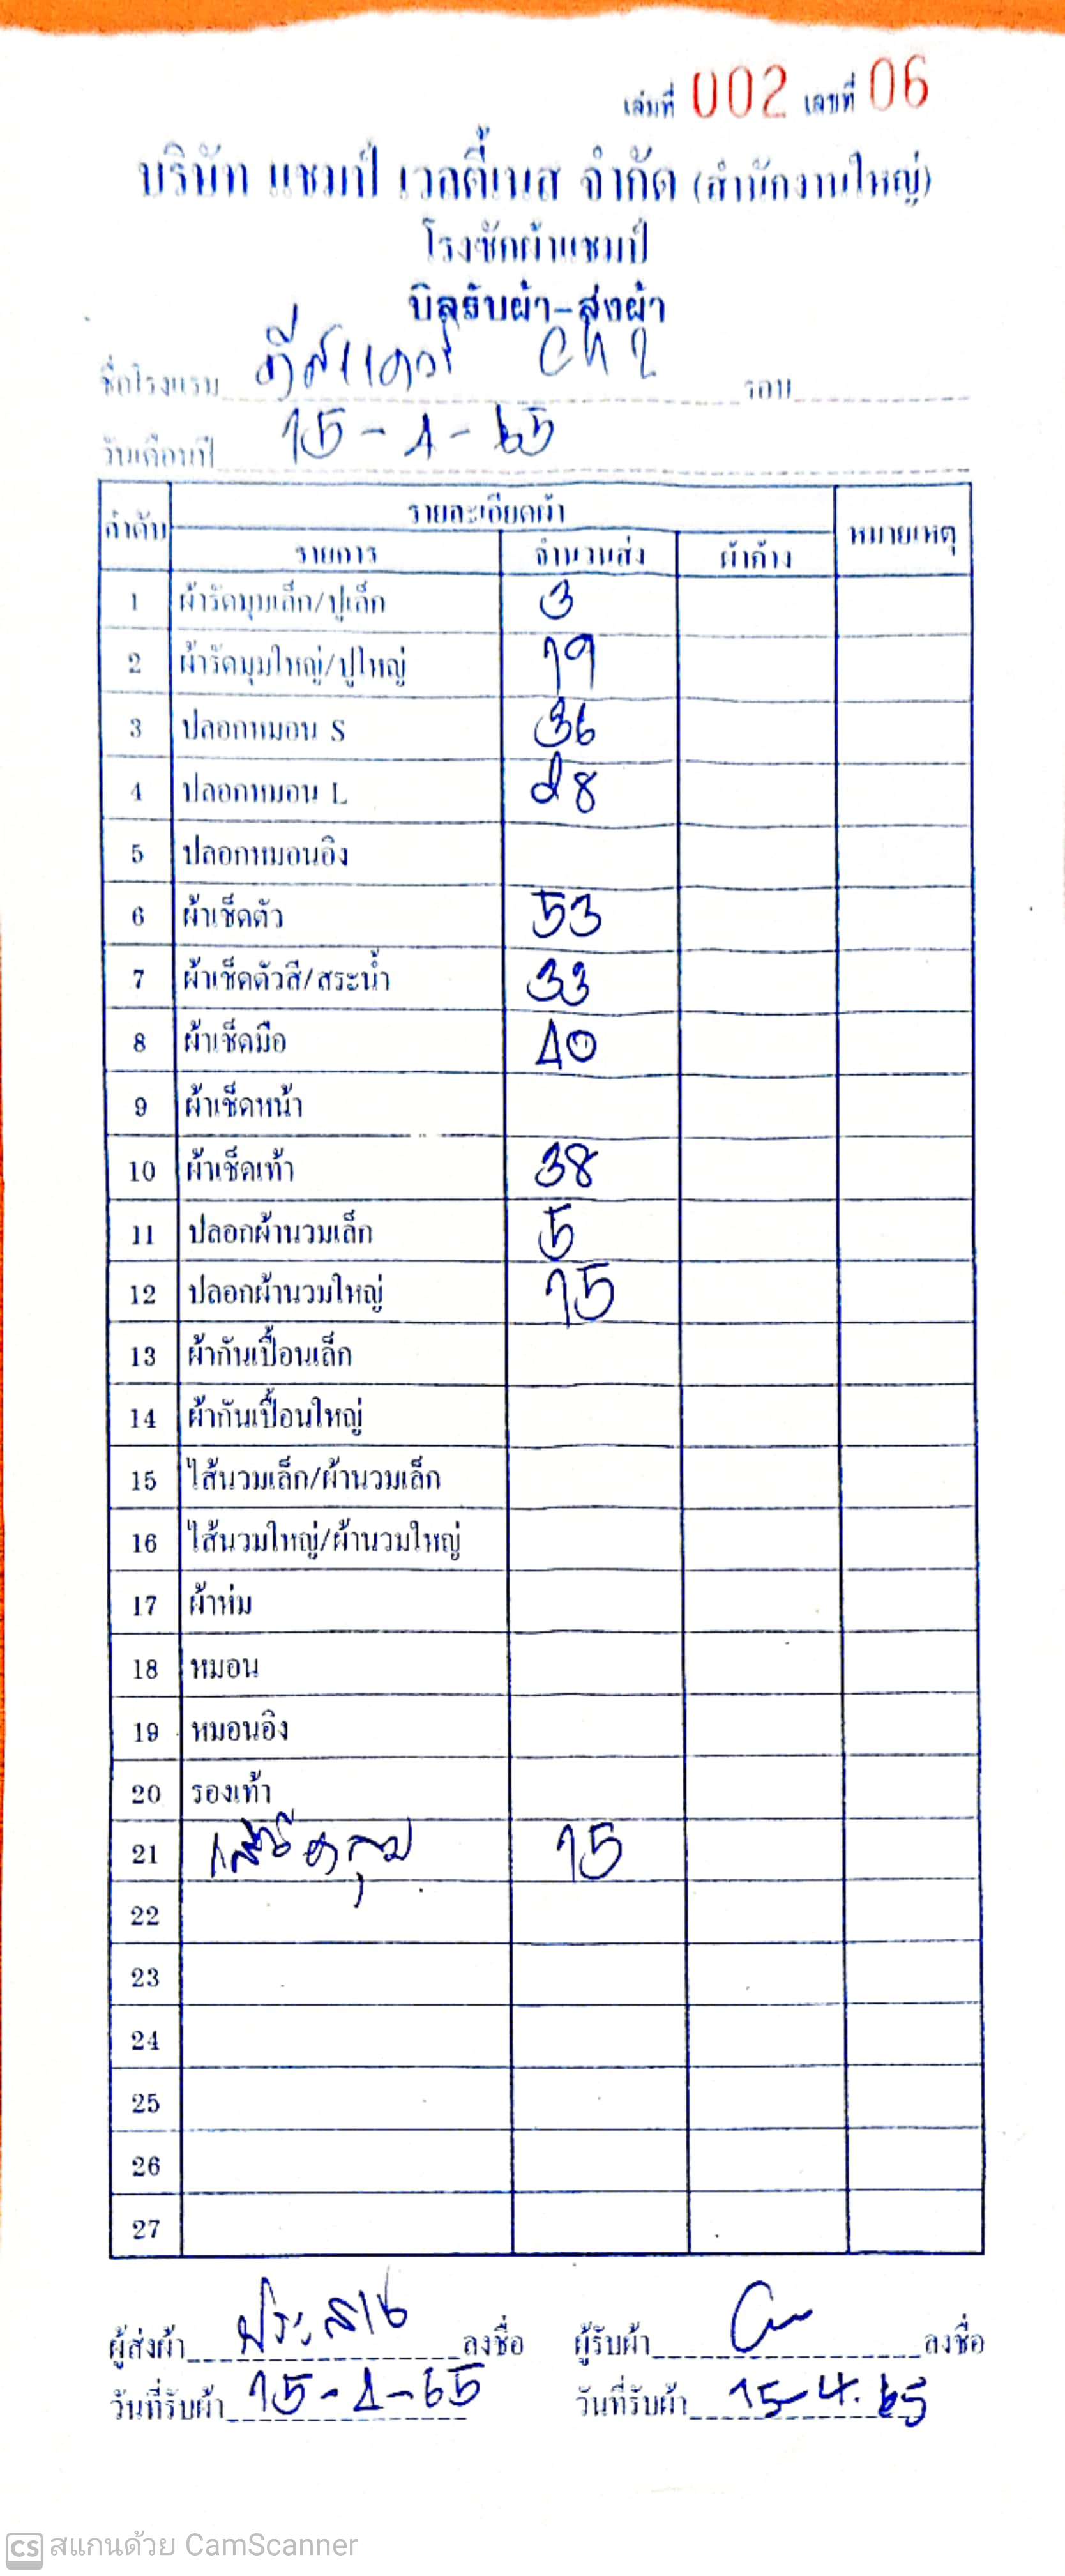 เล่มที่ 002 เลขที่ 06
บริษัท แชมป์ เวลตี้เนส จำกัด (สำนักงานใหญ่)
โรงซักผ้าแชมป์
บิลรับผ้า-ส่งผ้า
ชื่อโรงแรม Ch 2 รอบ
วันเดือนปี 15-4-65
ลำดับ รายละเอียดผ้า หมายเหตุ
รายการ จำนวนส่ง ผ้าค้าง
1 ผ้ารัดมุมเล็ก/ปูเล็ก 3
2 ผ้ารัดมุมใหญ่/ปูใหญ่ 19
3 ปลอกหมอน S 36
4 ปลอกหมอน L 28
5 ปลอกหมอนอิง
6 ผ้าเช็ดตัว 53
7 ผ้าเช็ดตัวสี/สระน้ำ 33
8 ผ้าเช็ดมือ 40
9 ผ้าเช็ดหน้า
10 ผ้าเช็ดเท้า 38
11 ปลอกผ้านวมเล็ก 5
12 ปลอกผ้านวมใหญ่ 15
13 ผ้ากันเปื้อนเล็ก
14 ผ้ากันเปื้อนใหญ่
15 ไส้นวมเล็ก/ผ้านวมเล็ก
16 ไส้นวมใหญ่/ผ้านวมใหญ่
17 ผ้าห่ม
18 หมอน
19 หมอนอิง
20 รองเท้า
21 เสื้อคลุม 15
22
23
24
25
26
27
ผู้ส่งผ้า ลงชื่อ ผู้รับผ้า ลงชื่อ
วันที่รับผ้า 15-4-65 วันที่รับผ้า 15-4.65
CS สแกนด้วย CamScanner